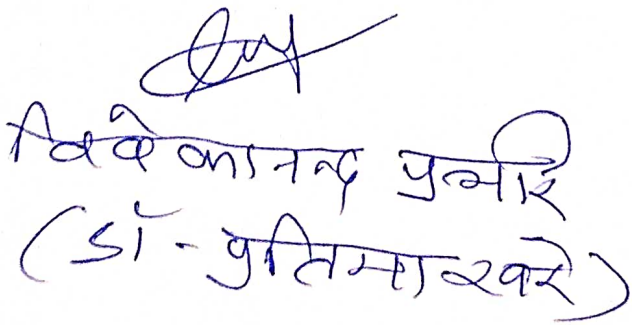 विवेकानन्द प्रभारि
(डॉ - प्रतिमा खरे)